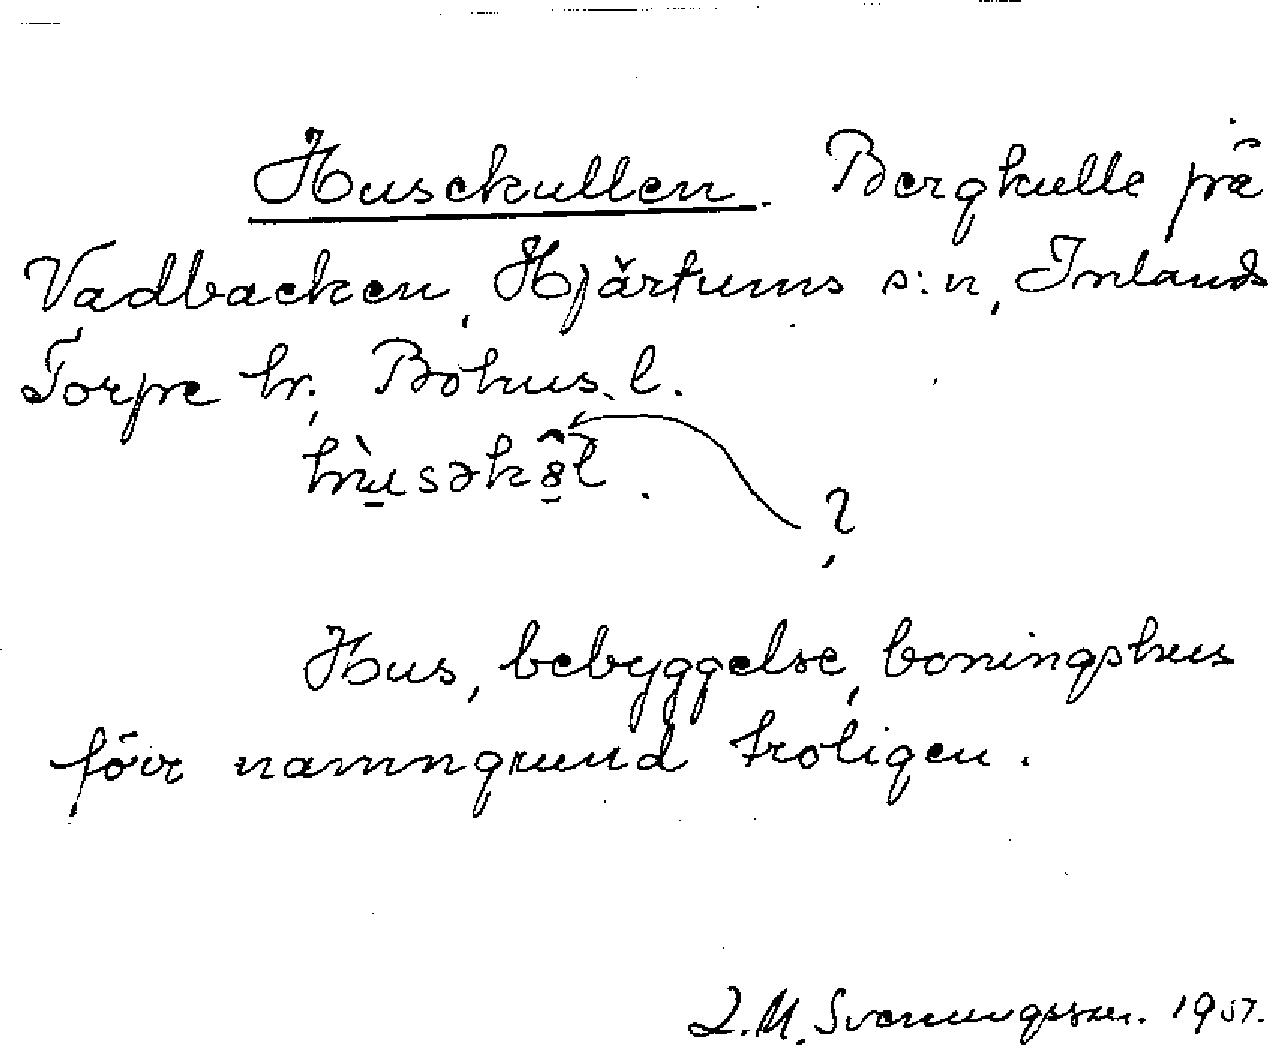 Husekullen. Bergkulle på
Vadbacken, Hjärtums s:n, Inlands
Torpe hr, Bohus. l.
hùsəkȣ̂l.
?
Hus, bebyggelse, boningshus
förr namngrund troligen.
J.M. Svenungsson. 1957.